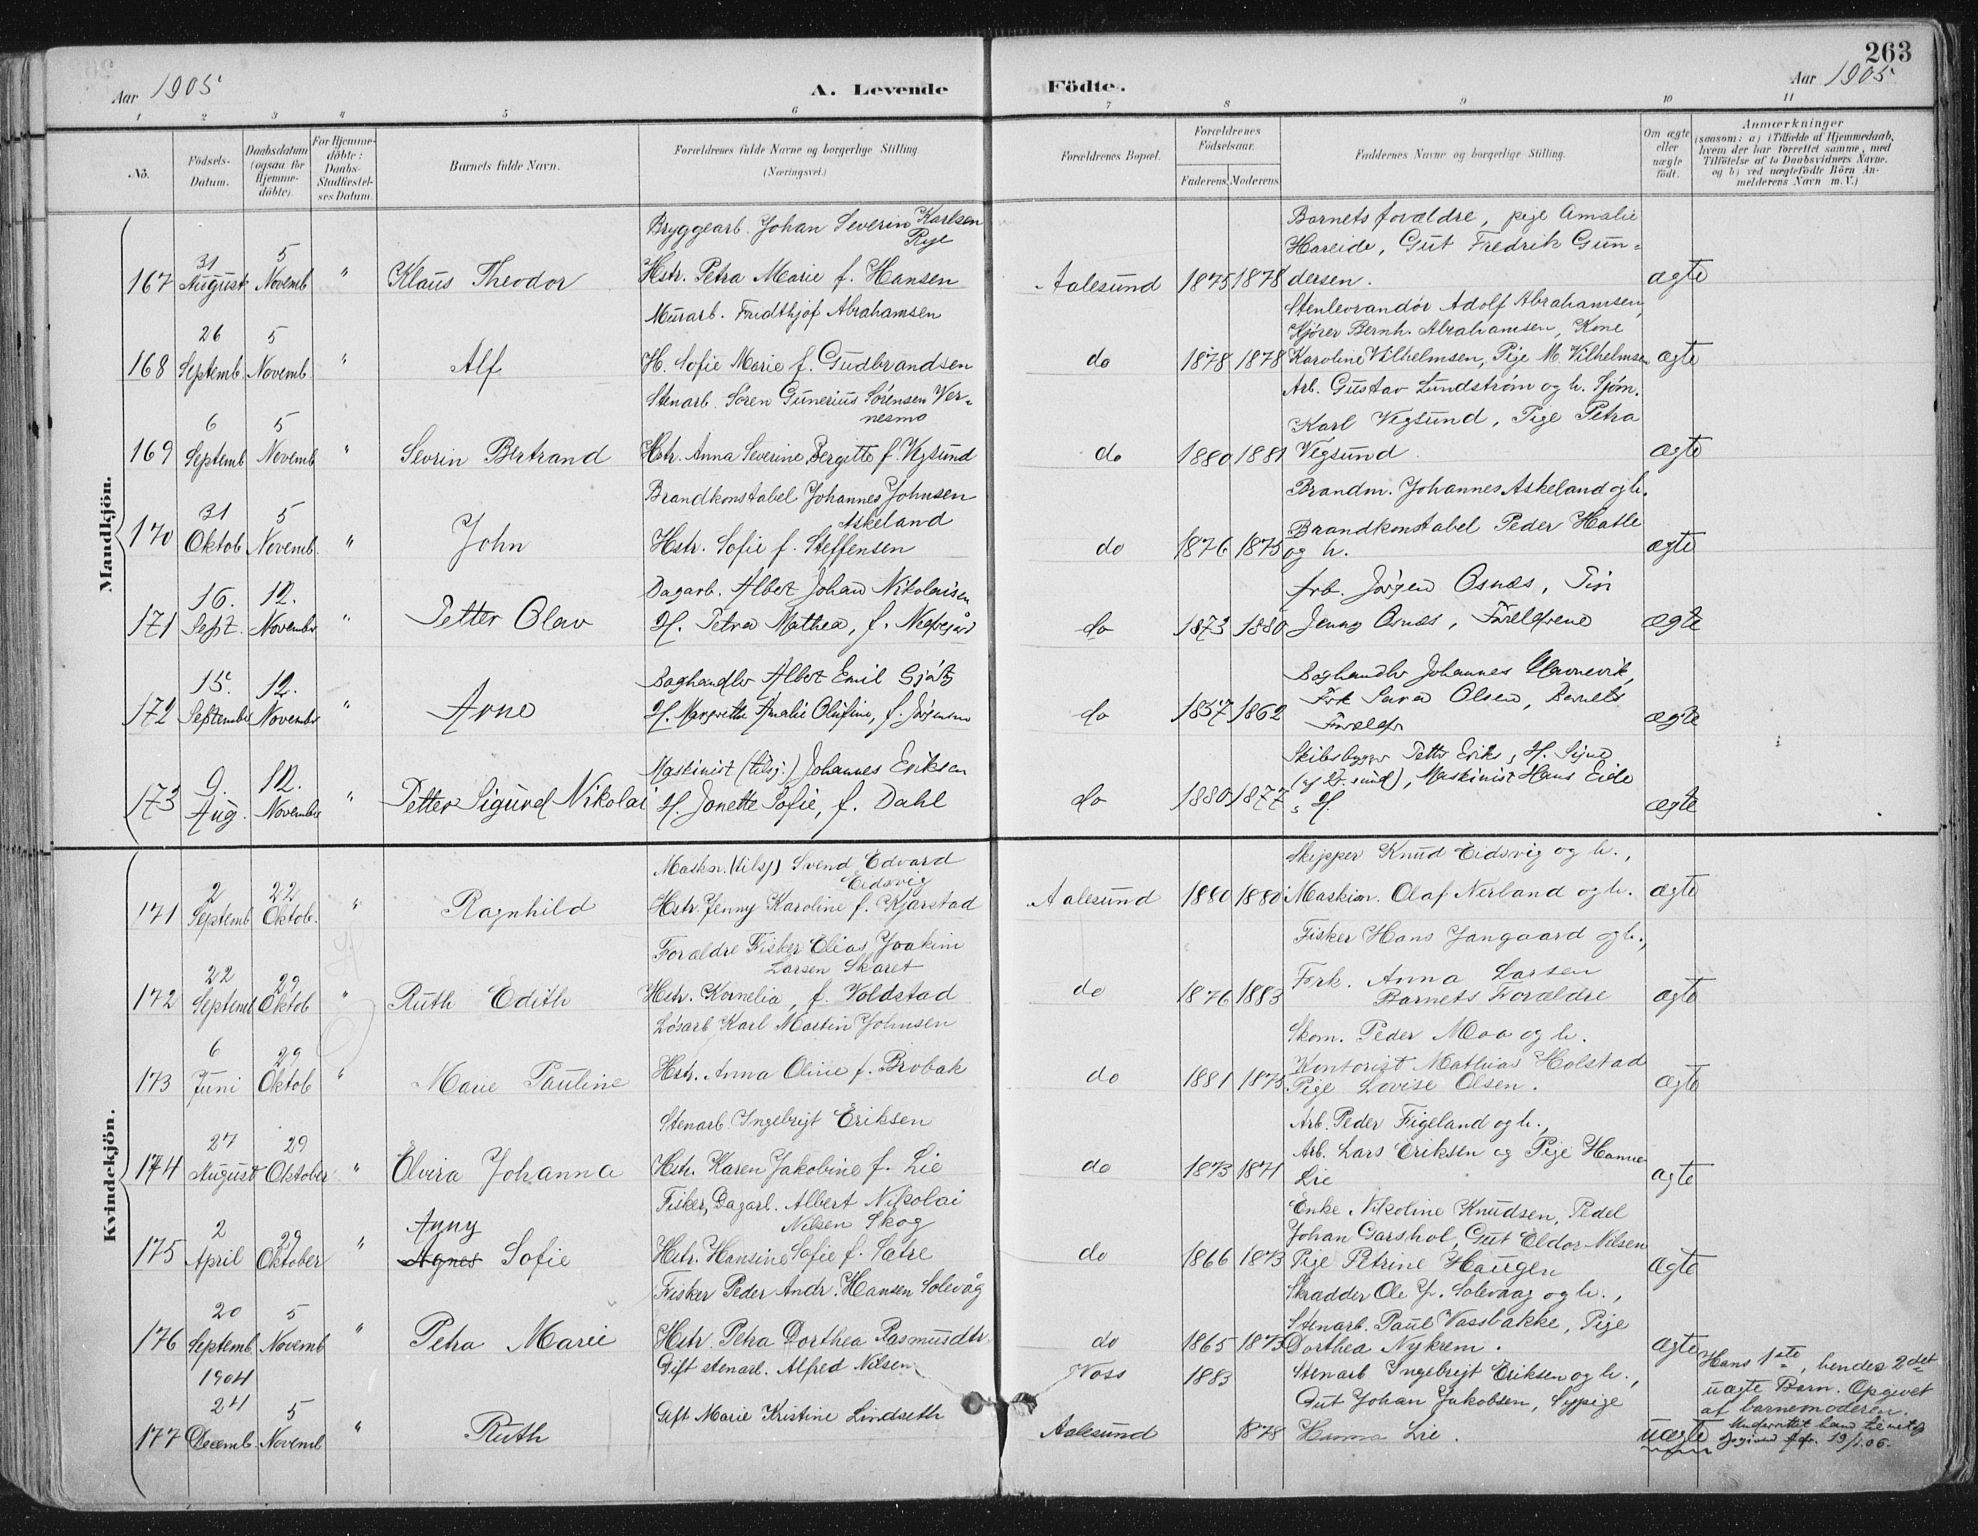 263
Aar 1905
A. Levende Födte.
Aar 1905
1 2 3 4 5 6 7 8 9 10 11
No.
Födsels-Datum.
Daabsdatum (ogsaa for Hjemme-döbte).
For Hjemme-döbte: Daabs-Stadfæstelses Datum.
Barnets fulde Navn.
Forældrenes fulde Navne og borgerlige Stilling. (Næringsvei.)
Forældrenes Bopæl.
Forældrenes Födselsaar.
Faderens. Moderens.
Faddernes Navne og borgerlige Stilling.
Om ægte eller uægte födt.
Anmærkninger
(saasom: a) i Tilfælde af Hjemmedaab, hvem der har forrettet samme, med Tilföielse af to Daabsvidners Navne. og b) ved uægtefödte Börn Anmelderens Navn m. V.)
Mandkjön.
Bryggearb. Johan Severin Karlsen
Rye
Barnets forældre, pige Amalie
Hareide, Gut Fredrik Gun-
167 31 August 5 Novemb " Klaus Theodor Hstr. Petra Marie f. Hansen Aalesund 1875 1878 dersen. ægte
Murarb. Fridthjof Abrahamsen
Stenleverandør Adolf Abrahamsen,
Kjører Bernh. Abrahamsen, Kone
168 26 Septemb 5 Novemb " Alf H. Sofie Marie f. Gudbrandsen do 1878 1878 Karoline Vilhelmsen, Pige M. Vilhelmsen ægte
Stenarb. Søren Gunerius Sørensen Ver-
nesmo
Arb. Gustav Lundstrøm og h. Sjøm.
Karl Vegsund, Pige Petra
169 6 Septemb 5 Novemb " Sevrin Bertrand Hstr. Anna Severine Bergitte f. Vegsund do 1880 1881 Vegsund. ægte
Brandkonstabel Johannes Johnsen
Askeland
Brandm. Johannes Askeland og h.
Brandkonstabel Peder Hatle
170 31 Oktob 5 Novemb. " John Hstr. Sofie f. Steffensen do 1876 1875 og h. ægte
Dagarb. Albert Johan Nikolaisen
Arb. Jørgen Osnæs,
171 16. Sept. 12. November " Petter Olav H. Petra Mathea, f. do 1873 1880 Jenny Osnæs, Foreldrene ægte
Boghandler Albert Emil
Boghandler Johannes
Frk Sara Olsen, Barnets
172 15. September 12. November " Arne H. Margrethe Amalie Olufine, f. Jørgensen do 1857 1862 Foreldr ægte
Maskinist (tilsj.) Johannes Eriksen
Skibsbygger Petter Eriks, H. Signe
Maskinist Hans Eide
173 9. Aug. 12. November " Petter Sigurd Nikolai H. Jonette Sofie, f. Dahl do 1880 1877 " H. ægte
Kvindekjön.
Maskn. (tilsj) Svend Edvard
Eidsvig
Skipper Knud Eidsvig og h.,
171 2 Septemb 22 Oktob. " Ragnhild Hstr. Jenny Karoline f. Kjærstad Aalesund 1880 1880 Maskin. Olaf Nerland og h. ægte
Forældre Fisker Elias Joakim
Larsen Skaret
Fisker Hans Jangaard og h.,
Frk. Anna Larsen
172 22 Septemb 29 Oktob " Ruth Edith Hstr. Kornelia, f. Voldstad do 1876 1883 Barnets Forældre ægte
Løsarb Karl Martin Johnsen
Skom. Peder Moa og h.
Kontorist Mathias Holstad
173 6 Juni 29 Oktob " Marie Pauline Hstr. Anna Oline f. Brobak do 1881 1875 Pige Lovise Olsen. ægte
Stenarb. Ingebrigt Eriksen
Arb. Peder Figeland og h.,
Arb. Lars Eriksen og Pige Hanne
174 27 August 29 Oktober " Elvira Johanna Hstr. Karen Jakobine f. Lie do 1873 1871 Lie ægte
Fisker, Dagarb. Albert Nikolai
Nilsen Skog
Enke Nikoline Knudsen, Pedel
Johan Garshol, Gut Eldor Nilsen
Anny
175 2 April 29 Oktober " Agnes Sofie Hstr. Hansine Sofie f. Sætre do 1866 1873 Pige Petrine Haugen ægte
Fisker Peder Andr. Hansen Solevåg
Skrædder Ole J. Solevaag og h.,
Stenarb. Paul Vassbakke, Pige
176 20 Septemb 5 Novemb " Petra Marie Hstr. Petra Dorthea Rasmusdtr do 1865 1873 Dorthea Nykrem. ægte
1904
Gift stenarb. Alfred Nilsen Voss 1883
Stenarb Ingebrigt Eriksen og h.,
Gut Johan Jakobsen, Sypige
177 24 Decemb 5 Novemb " Ruth Gift Marie Kristine Lindseth Aalesund 1878 Hanna Lie. uægte
Hans 1ste, hendes 2det
uægte Barn. Opgivet
af barnemoderen.
19/1.06.